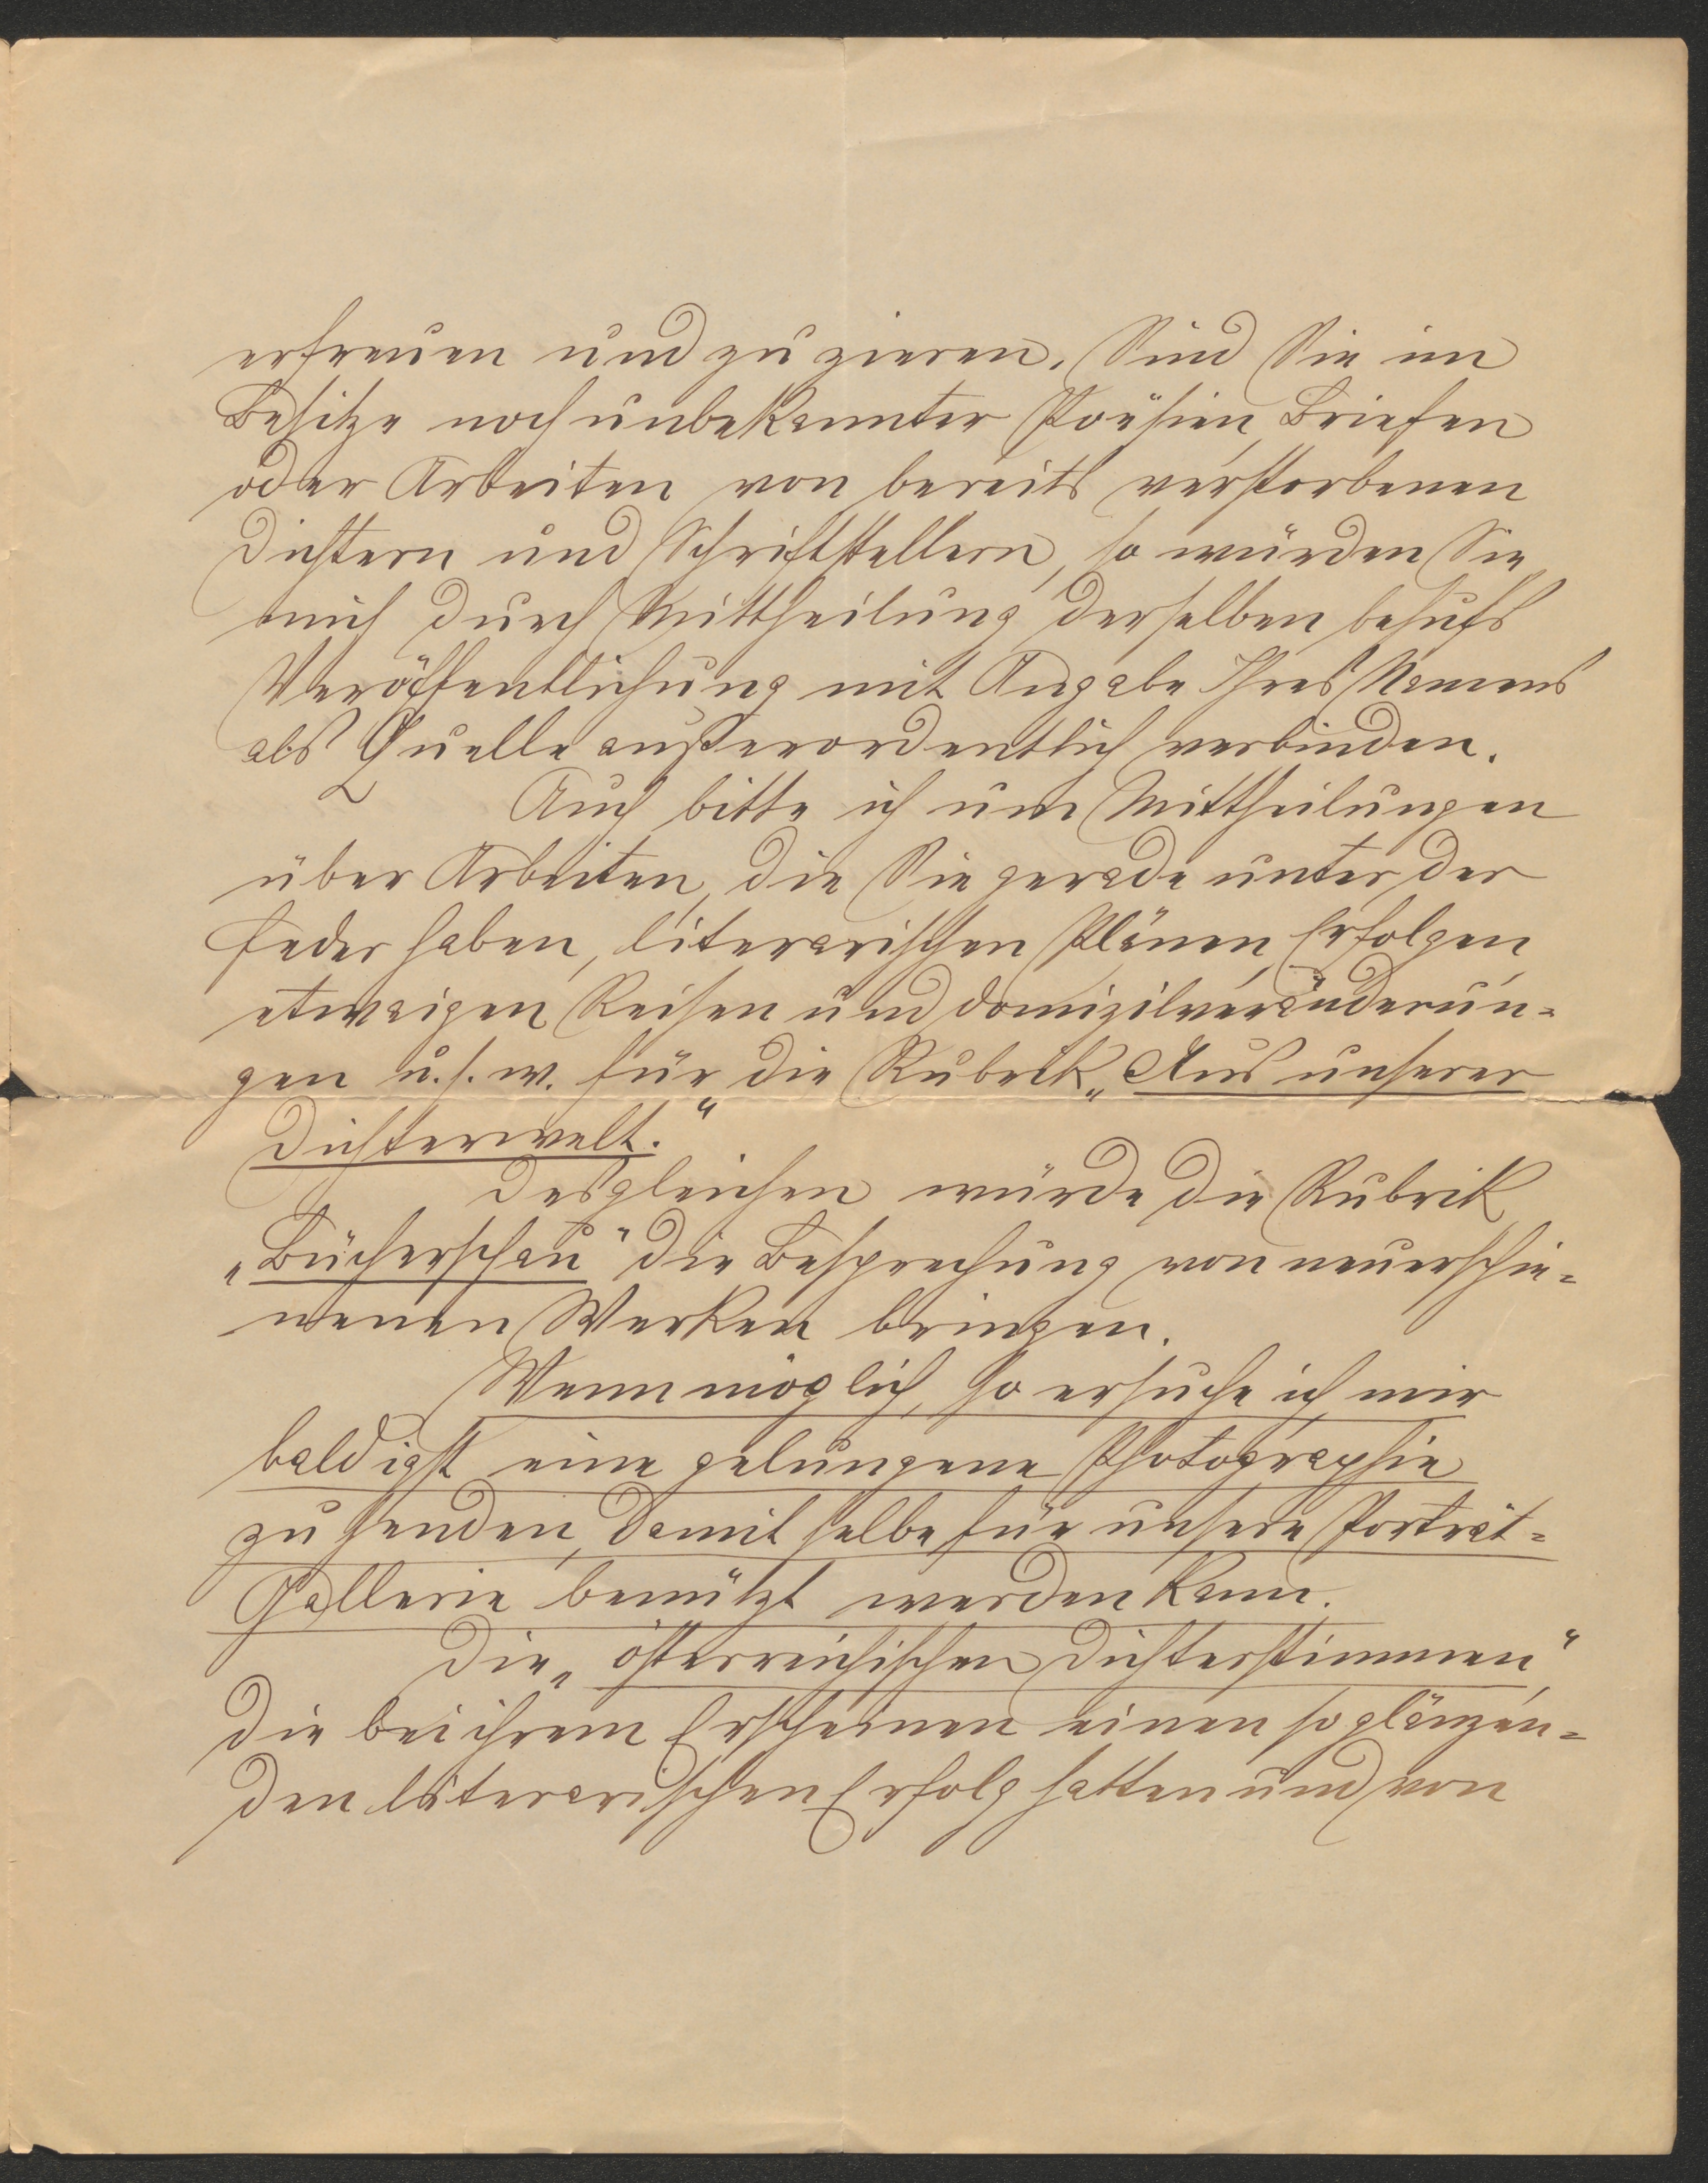 erfreuen und zu zieren. Sind Sie im
Besitze noch unbekannter Poësien, Briefen
oder Arbeiten von bereits verstorbenen
Dichtern und Schriftstellern, so würden Sie
mich durch Mittheilung derselben behufs
Veröffentlichung mit Angabe Ihres Namens
als Quelle außerordentlich verbinden.
Auch bitte ich um Mittheilungen
über Arbeiten, die Sie gerade unter der
Feder haben, literarischen Plänen, Erfolgen,
etwaigen Reisen und Domizilveränderun=
gen u. s. w. für die Rubrik „Aus unserer
Dichterwelt.“
Desgleichen würde die Rubrik
„Bücherschau“ die Besprechung von neuerschie=
nenen Werken bringen.
Wenn möglich, so ersuche ich mir
baldigst eine gelungene Photographie
zu senden, damit selbe für unsere Porträt=
Gallerie benützt werden kann.
Die „österreichischen Dichterstimmen,“
die bei ihrem Erscheinen einen so glänzen=
den literarischen Erfolg hatten und von